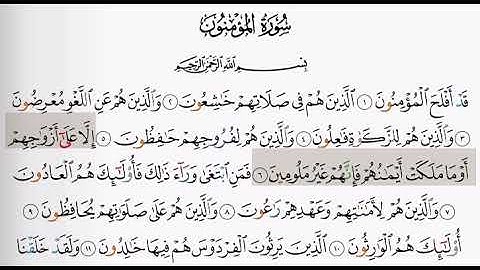 سُورَةُ الْمُؤْمِنُونَ
بِسْمِ اللَّهِ الرَّحْمَٰنِ الرَّحِيمِ
قَدْ أَفْلَحَ الْمُؤْمِنُونَ ١ الَّذِينَ هُمْ فِي صَلَاتِهِمْ خَاشِعُونَ ٢ وَالَّذِينَ هُمْ عَنِ اللَّغْوِ مُعْرِضُونَ
٣ وَالَّذِينَ هُمْ لِلزَّكَوٰةِ فَاعِلُونَ ٤ وَالَّذِينَ هُمْ لِفُرُوجِهِمْ حَافِظُونَ ٥ إِلَّا عَلَىٰ أَزْوَاجِهِمْ
أَوْ مَا مَلَكَتْ أَيْمَانُهُمْ فَإِنَّهُمْ غَيْرُ مَلُومِينَ ٦ فَمَنِ ابْتَغَىٰ وَرَاءَ ذَٰلِكَ فَأُولَٰئِكَ هُمُ الْعَادُونَ
٧ وَالَّذِينَ هُمْ لِأَمَانَاتِهِمْ وَعَهْدِهِمْ رَاعُونَ ٨ وَالَّذِينَ هُمْ عَلَىٰ صَلَوَاتِهِمْ يُحَافِظُونَ ٩
أُولَٰئِكَ هُمُ الْوَارِثُونَ ١٠ الَّذِينَ يَرِثُونَ الْفِرْدَوْسَ هُمْ فِيهَا خَالِدُونَ ١١ وَلَقَدْ خَلَقْنَا